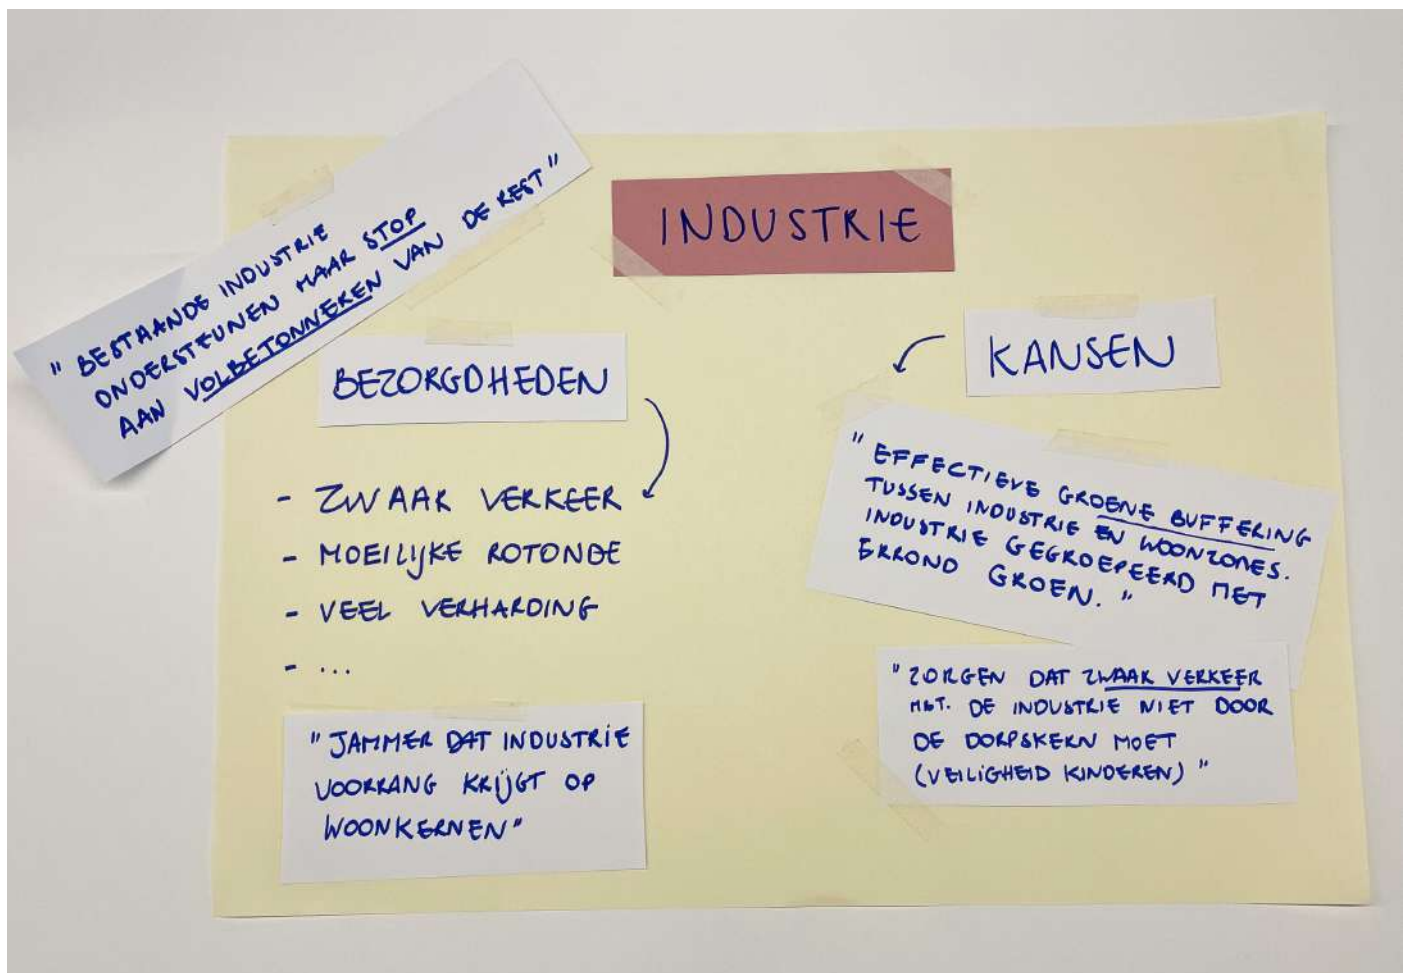 INDUSTRIE
"BESTAANDE INDUSTRIE
ONDERSTEUNEN MAAR STOP
AAN VOLBETONNEREN VAN DE REST"
BEZORGDHEDEN
- ZWAAR VERKEER
- MOEILIJKE ROTONDE
- VEEL VERHARDING
- ...
"JAMMER DAT INDUSTRIE
VOORRANG KRIJGT OP
WOONKERNEN"
KANSEN
"EFFECTIEVE GROENE BUFFERING
TUSSEN INDUSTRIE EN WOONZONES.
INDUSTRIE GEGROEPEERD MET
ERROND GROEN."
"ZORGEN DAT ZWAAR VERKEER
MBT. DE INDUSTRIE NIET DOOR
DE DORPSKERN MOET
(VEILIGHEID KINDEREN)"